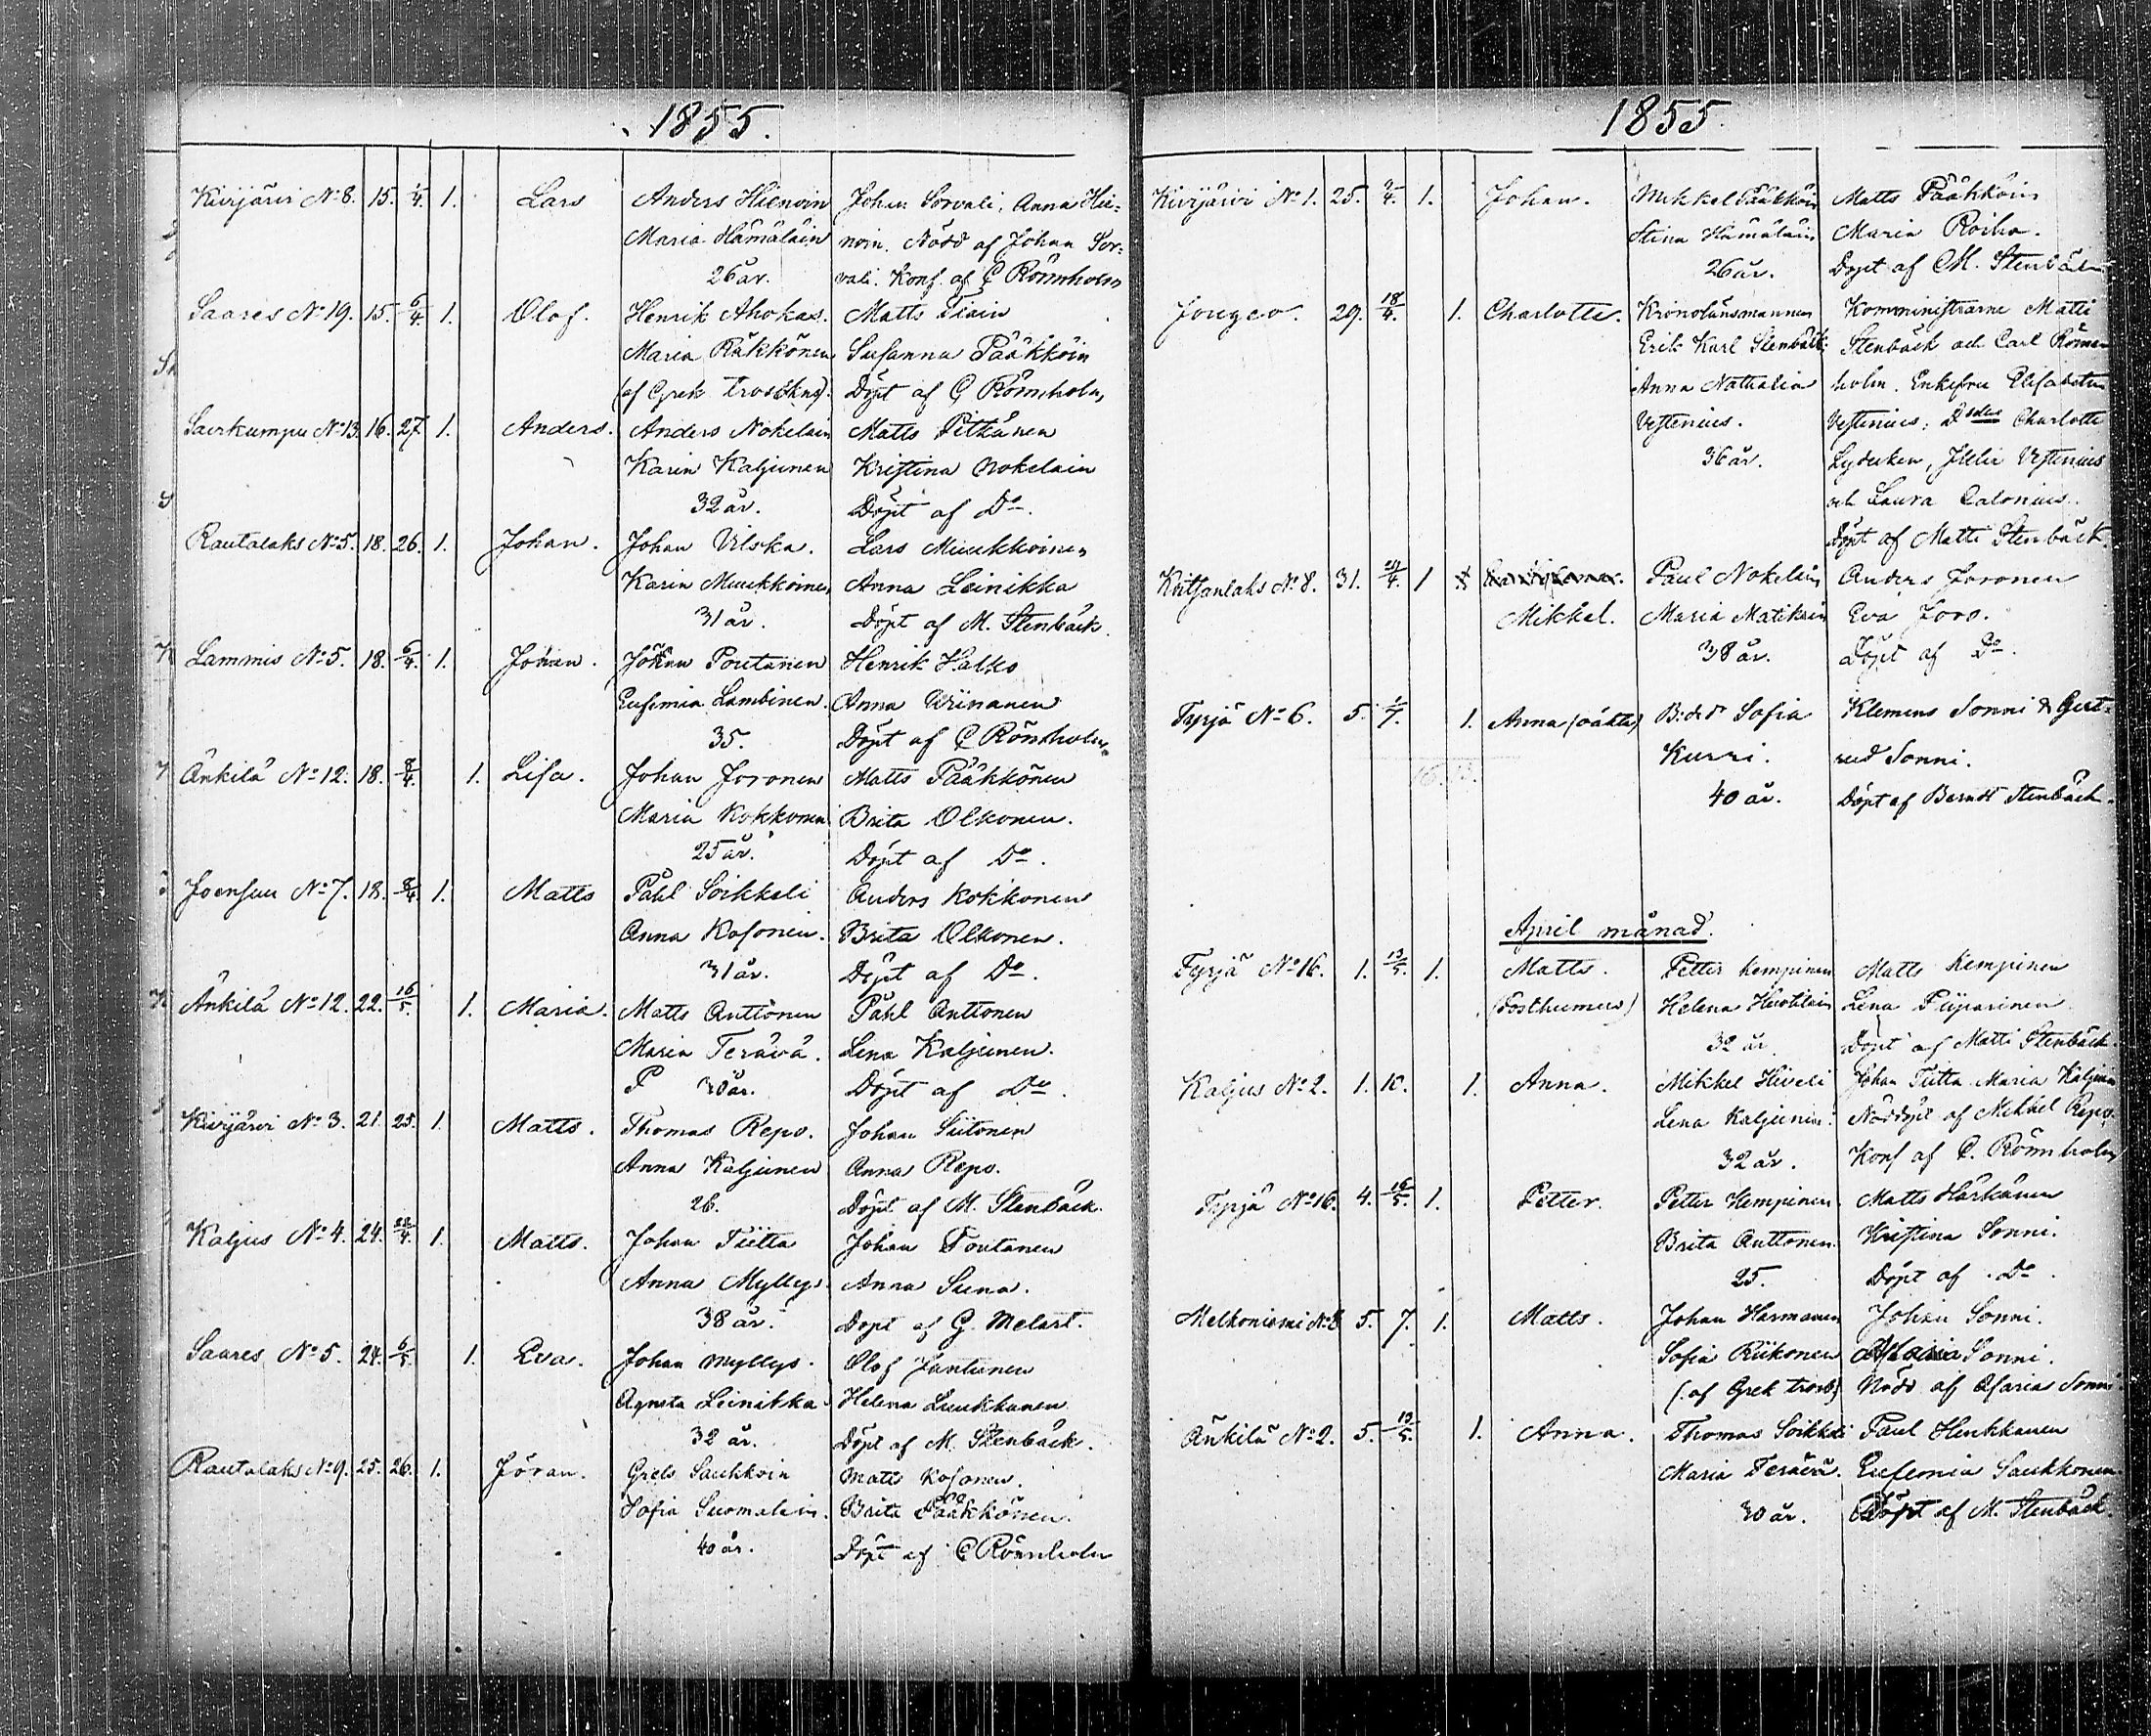 1855.
Kirjärvi No 8. 15. 1/4. 1. Lars Anders Hienoin Johan Sorvali, Anna Hie-
Maria Hämäläin noin. Nödd af Johan Sor-
26 år. vali. Konf. af C Rönnholm
Saares No 19. 15. 6/4. 1. Olof. Henrik Ahokas. Matts Tiain
Maria Räkkönen Susanna Pääkköin
(af Grek trosbkns). Döpt af C Rönnholm,
No 13. 16. 27. 1. Anders. Anders Nokelain Matts Pitkänen
Karin Kaljunen Kristina Nokelain
32 år. Döpt af Do.
Rautalaks No 5. 18. 26. 1. Johan. Johan Vilska. Lars Muukkoinen
Karin Muukkoinen Anna Leinikka
31 år. Döpt af M. Stenbäck.
Lammis No 5. 18. 6/4. 1. Johan. Johan Poutanen Henrik Halko
Eufemia Lambinen. Anna Wiinanen
35. Döpt af C Rönnholm
Änkilä No 12. 18. 8/4. 1. Lisa. Johan Joronen Matts Pääkkönen
Maria Kokkonen Brita Olkonen.
25 år. Döpt af Do.
Joensuu No 7. 18. 8/4. 1. Matts Påhl Soikkeli Anders Kokkonen
Anna Kosonen. Brita Olkonen.
31 år. Döpt af Do.
Änkilä No 12. 22. 16/5. 1. Maria. Matts Anttonen Påhl Anttonen
Maria Terävä. Lena Kaljunen.
30 år. Döpt af Do.
Kirjärvi No 3. 21. 25. 1. Matts. Thomas Repo. Johan Siitonen
Anna Kaljunen Anna Repo.
26. Döpt af M. Stenbäck.
Kaljus No 4. 24. 1. Matts. Johan Tiitta Johan Poutanen
Anna Myllys. Anna Suna.
38 år. Döpt af G. Melart.
Saares No 5. 24. 6/5. 1. Eva. Johan Myllys. Olof Jantunen
Agneta Leinikka Helena Luukkanen
32 år. Döpt af M. Stenbäck.
Rautalaks No 9. 25. 26. 1. Jöran. Grels Saukkoin Matts Kosonen.
Sofia Suomalain. Brita Pääkkönen.
40 år. Döpt af C Rönnholm
1855
Kirjärvi No 1. 25. 1. Johan. Mikkel Pääkköin Matts Pääkköin
Stina Hämäläin Maria Roiha.
26 år. Döpt af M. Stenbäck
29. 18/4. 1. Charlotta. Kronolänsmannen Komministrarne Matti
Erik Karl Stenbäck; Stenbäck och Carl Rönn-
Anna Nathalia holm. Enkefru Elisabeth
Vestenius. Vestenius; Charlotte
36 år. Vestenius
och Laura Calonius.
Döpt af Matti Stenbäck.
Koitsanlaks No 8. 31. 1 Paul Nokelain Anders Joronen
Mikkel. Maria Matikain Eva Joro.
38 år. Döpt af Do.
Tyrjä No 6. 5. 1. Anna (oäkta) Sofia Klemens Sonni & Gert-
Kurri. rud Sonni.
40 år. Döpt af Berndt Stenbäck.
April månad.
Tyrjä No 16. 1. 13/5. 1. Matts. Petter Kempinen Matts Kempinen
(Posthumus) Helena Huotilain Lena Piiparinen
32 år Döpt af Matti Stenbäck.
Kaljus No 2. 1. 10. 1. Anna. Mikkel Johan Tiitta Maria Kaljunen
Lena Kaljunen. Nöddöpt af Mikkel Repo.
32 år. Konf af C. Rönnholm
Tyrjä No 16. 4. 16/5. 1. Petter. Petter Kempinen. Matts Härkänen
Brita Anttonen. Kristina Sonni.
25. Döpt af Do.
Melkoniemi No 8 5. 7. 1. Matts. Johan Harmanen Johan Sonni.
Sofia Riikonen Maria Sonni.
(af Grek trosb) Nödd af Maria Sonni
Änkilä No 2. 5. 13/5. 1. Anna. Thomas Soikkeli Paul Hinkkanen
Maria Terävä. Eufemia Saukkonen
30 år. Döpt af M. Stenbäck.